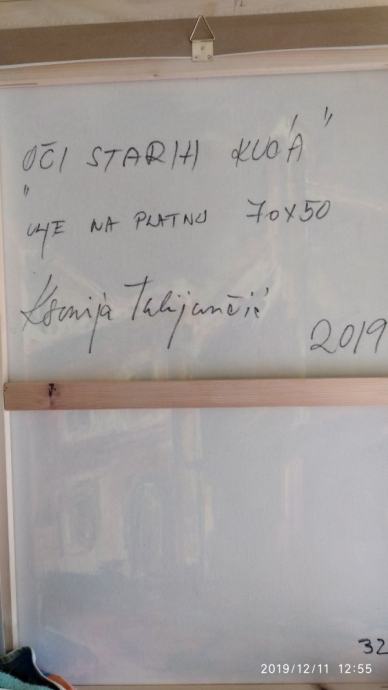 "OČI STARIH KUĆA"
ULJE NA PLATNU 70x50
Ksenija
2019
32
2019/12/11 12:55